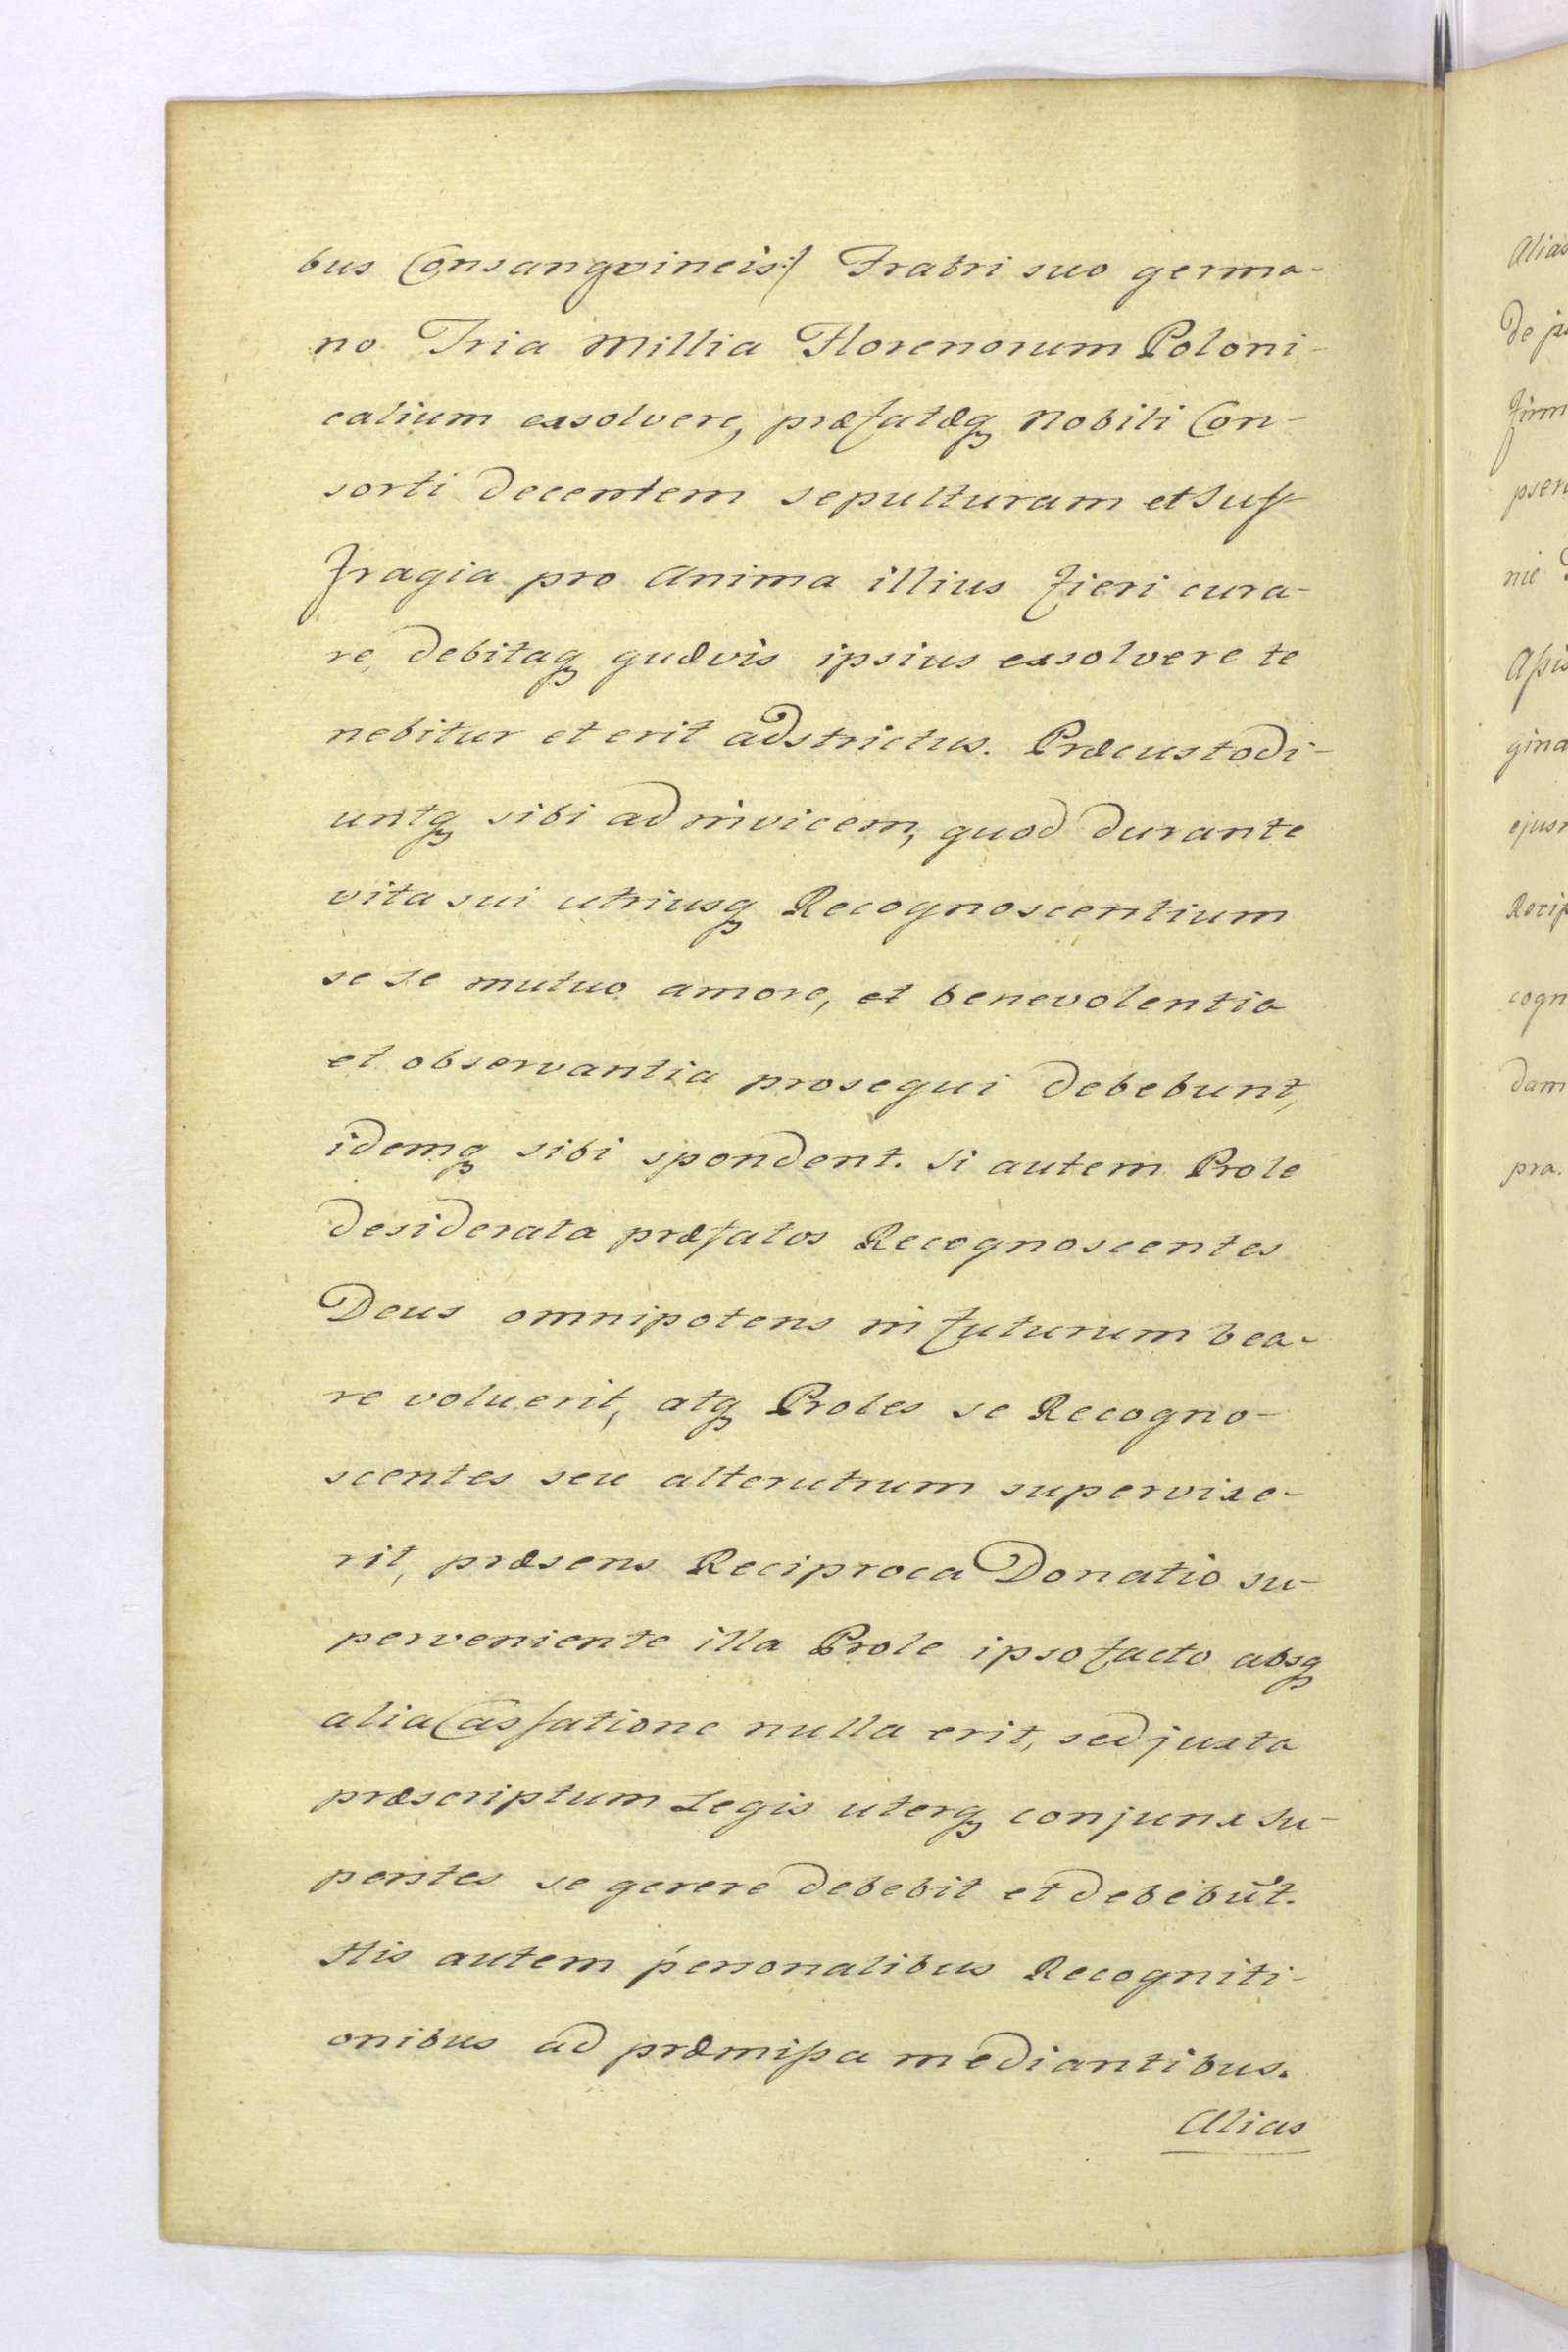 bus Consangvineis:/ Fratri suo germa-
no Tria Millia Florenorum Poloni-
calium exsolvere, præfatæq₃ Nobili Con-
sorti decentem sepulturam et Suf-
fragia pro Anima illius fieri cura-
re, debitaq₃ quævis ipsius exsolvere te
nebitur et erit adstrictus. Præcustodi-
untq₃ sibi ad invicem, quod durante
vita sui utriusq₃ Recognoscentium
se se mutuo amore, et benevolentia
et observantia prosequi debebunt,
idemq₃ sibi spondent. Si autem Prole
desiderata præfatos Recognoscentes
Deus omnipotens in futurum bea-
re voluerit, atq₃ Proles se Recogno-
scentes seu alterutrum supervixe-
rit, præsens Reciproca Donatio su-
perveniente illa Prole ipso facto absq₃
alia Cassatione nulla erit, sed juxta
præscriptum Legis uterq₃ conjunx su-
perstes se gerere debebit et debebūt.
His autem personalibus Recogniti-
onibus ad præmissa mediantibus.
Alias
Alias
De ju
firm
pser
nie
Assis
gina
ejus
Recip
cogn
dam
pra.